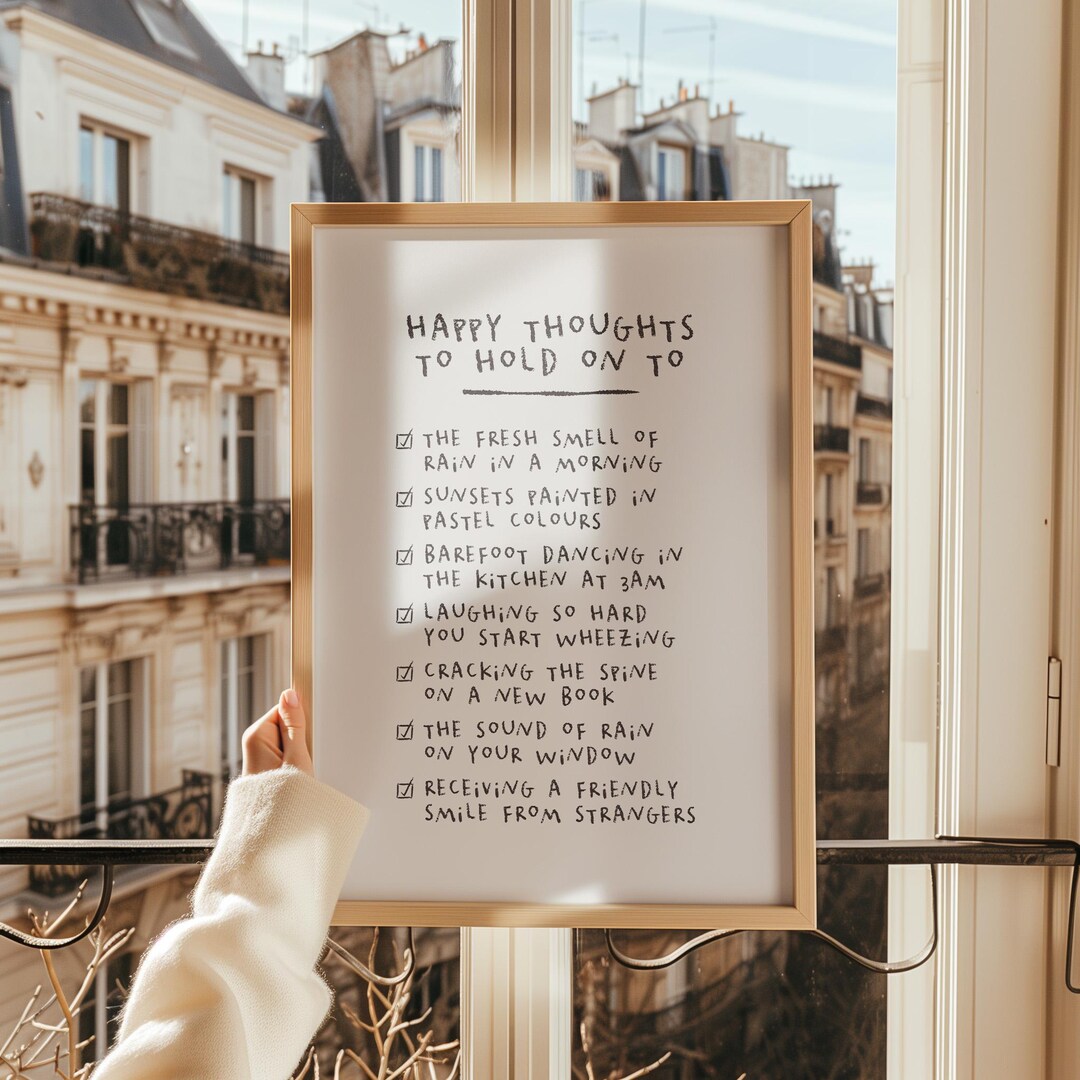 HAPPY THOUGHTS
TO HOLD ON TO
THE FRESH SMELL OF
RAIN IN A MORNING
SUNSETS PAINTED IN
PASTEL COLOURS
BAREFOOT DANCING IN
THE KITCHEN AT 3AM
LAUGHING SO HARD
YOU START WHEEZING
CRACKING THE SPINE
ON A NEW BOOK
THE SOUND OF RAIN
ON YOUR WINDOW
RECEIVING A FRIENDLY
SMILE FROM STRANGERS